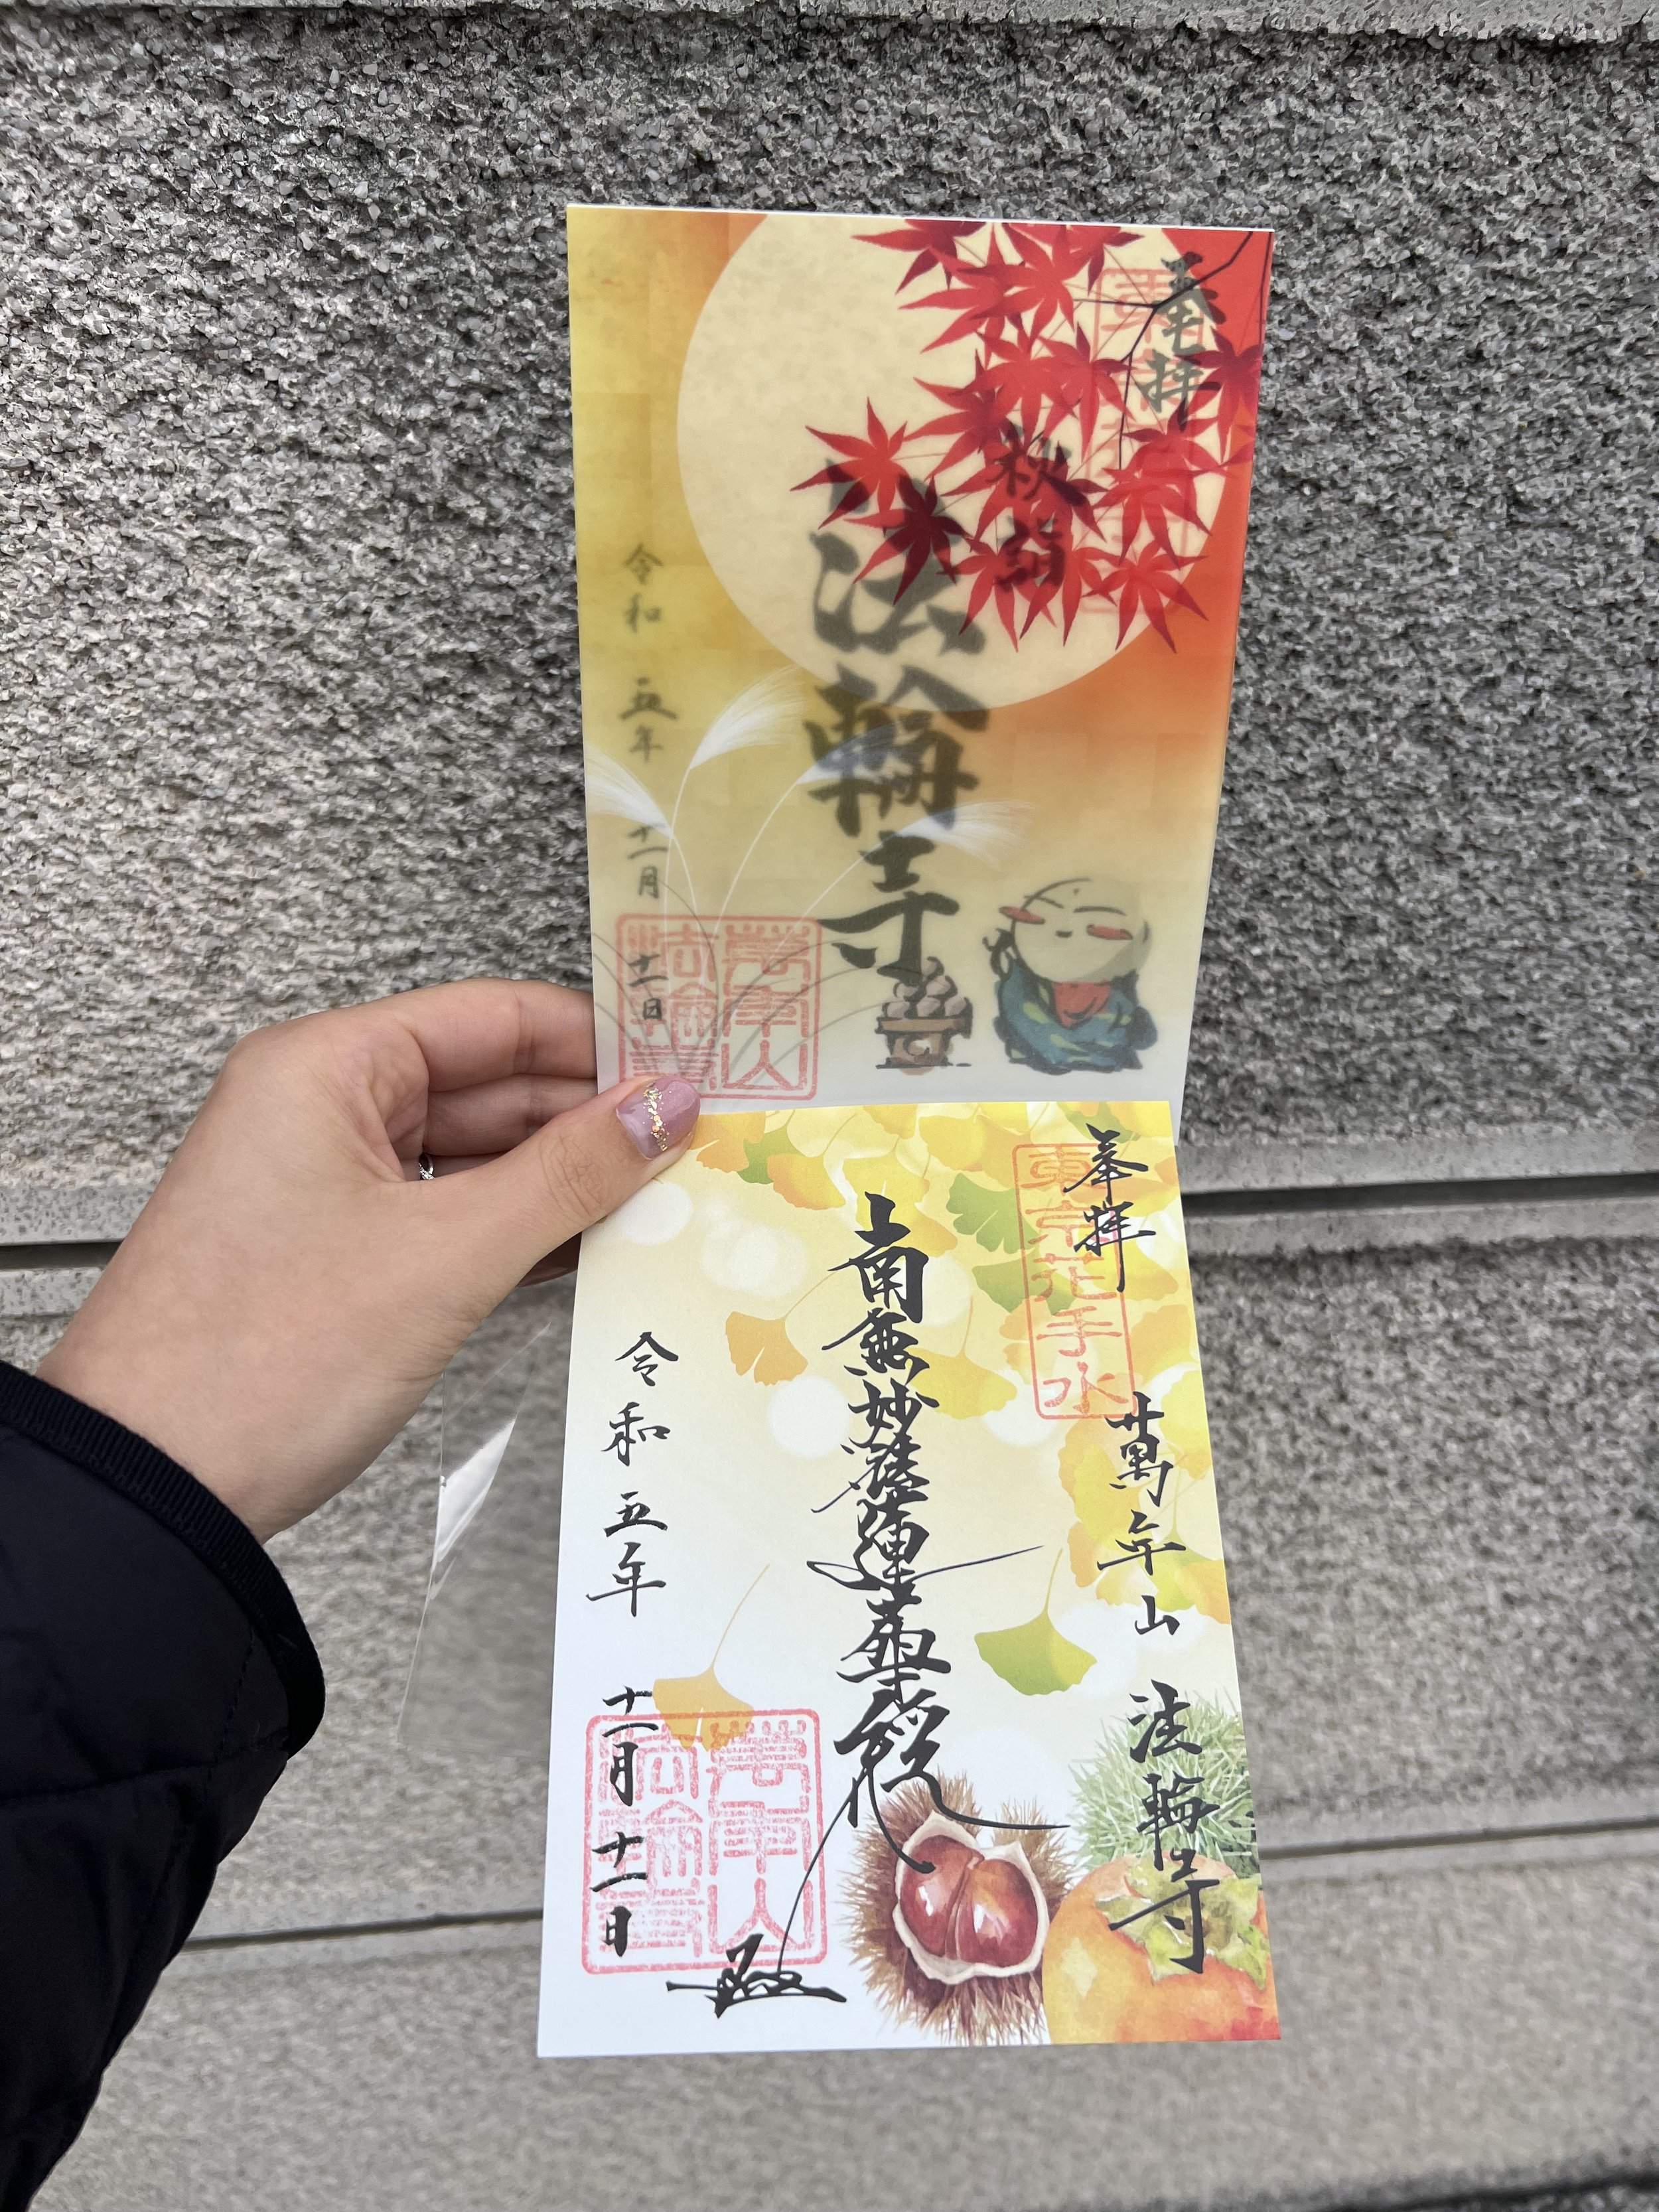 奉拝
秋詣
法輪寺
令和 五年 十一月 十一日
萬年山
法輪
奉拝
東京花手水
萬年山 法輪寺
南無妙法蓮華経
令和 五年 十一月 十一日
萬年山
法輪